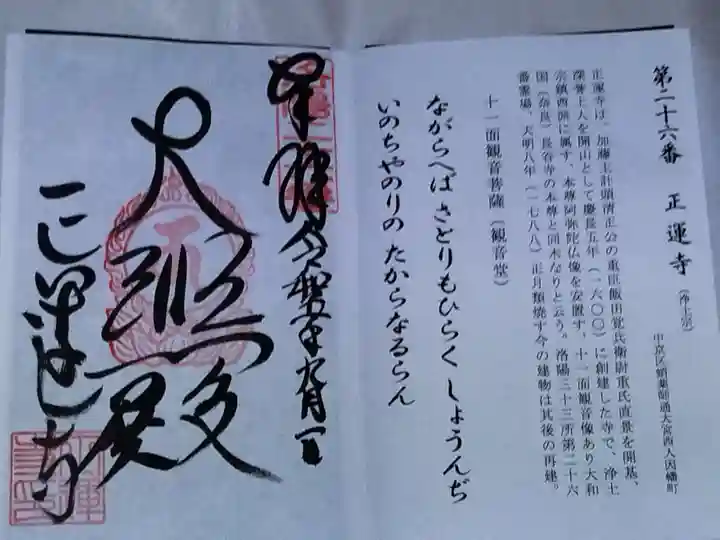 第二十六番 正運寺 (浄土宗)
中京区蛸薬師通大宮西入因幡町
正運寺は、加藤主計頭清正公の重臣飯田覚兵衛尉重氏直景を開基、
深誉上人を開山として慶長五年(一六〇〇)に創建した寺で、浄土
宗鎮西派に属す、本尊阿弥陀仏像を安置す、十一面観音像あり大和
国(奈良)長谷寺の本尊と同木なりと云う。洛陽三十三所第二十六
番霊場、天明八年(一七八八)正月類焼す今の建物は其後の再建。
十一面観音菩薩(観音堂)
ながらへば さとりもひらく しょうんぢ
いのちやのりの たからなるらん
奉拝 令和 年九月一日
大悲殿
正運寺